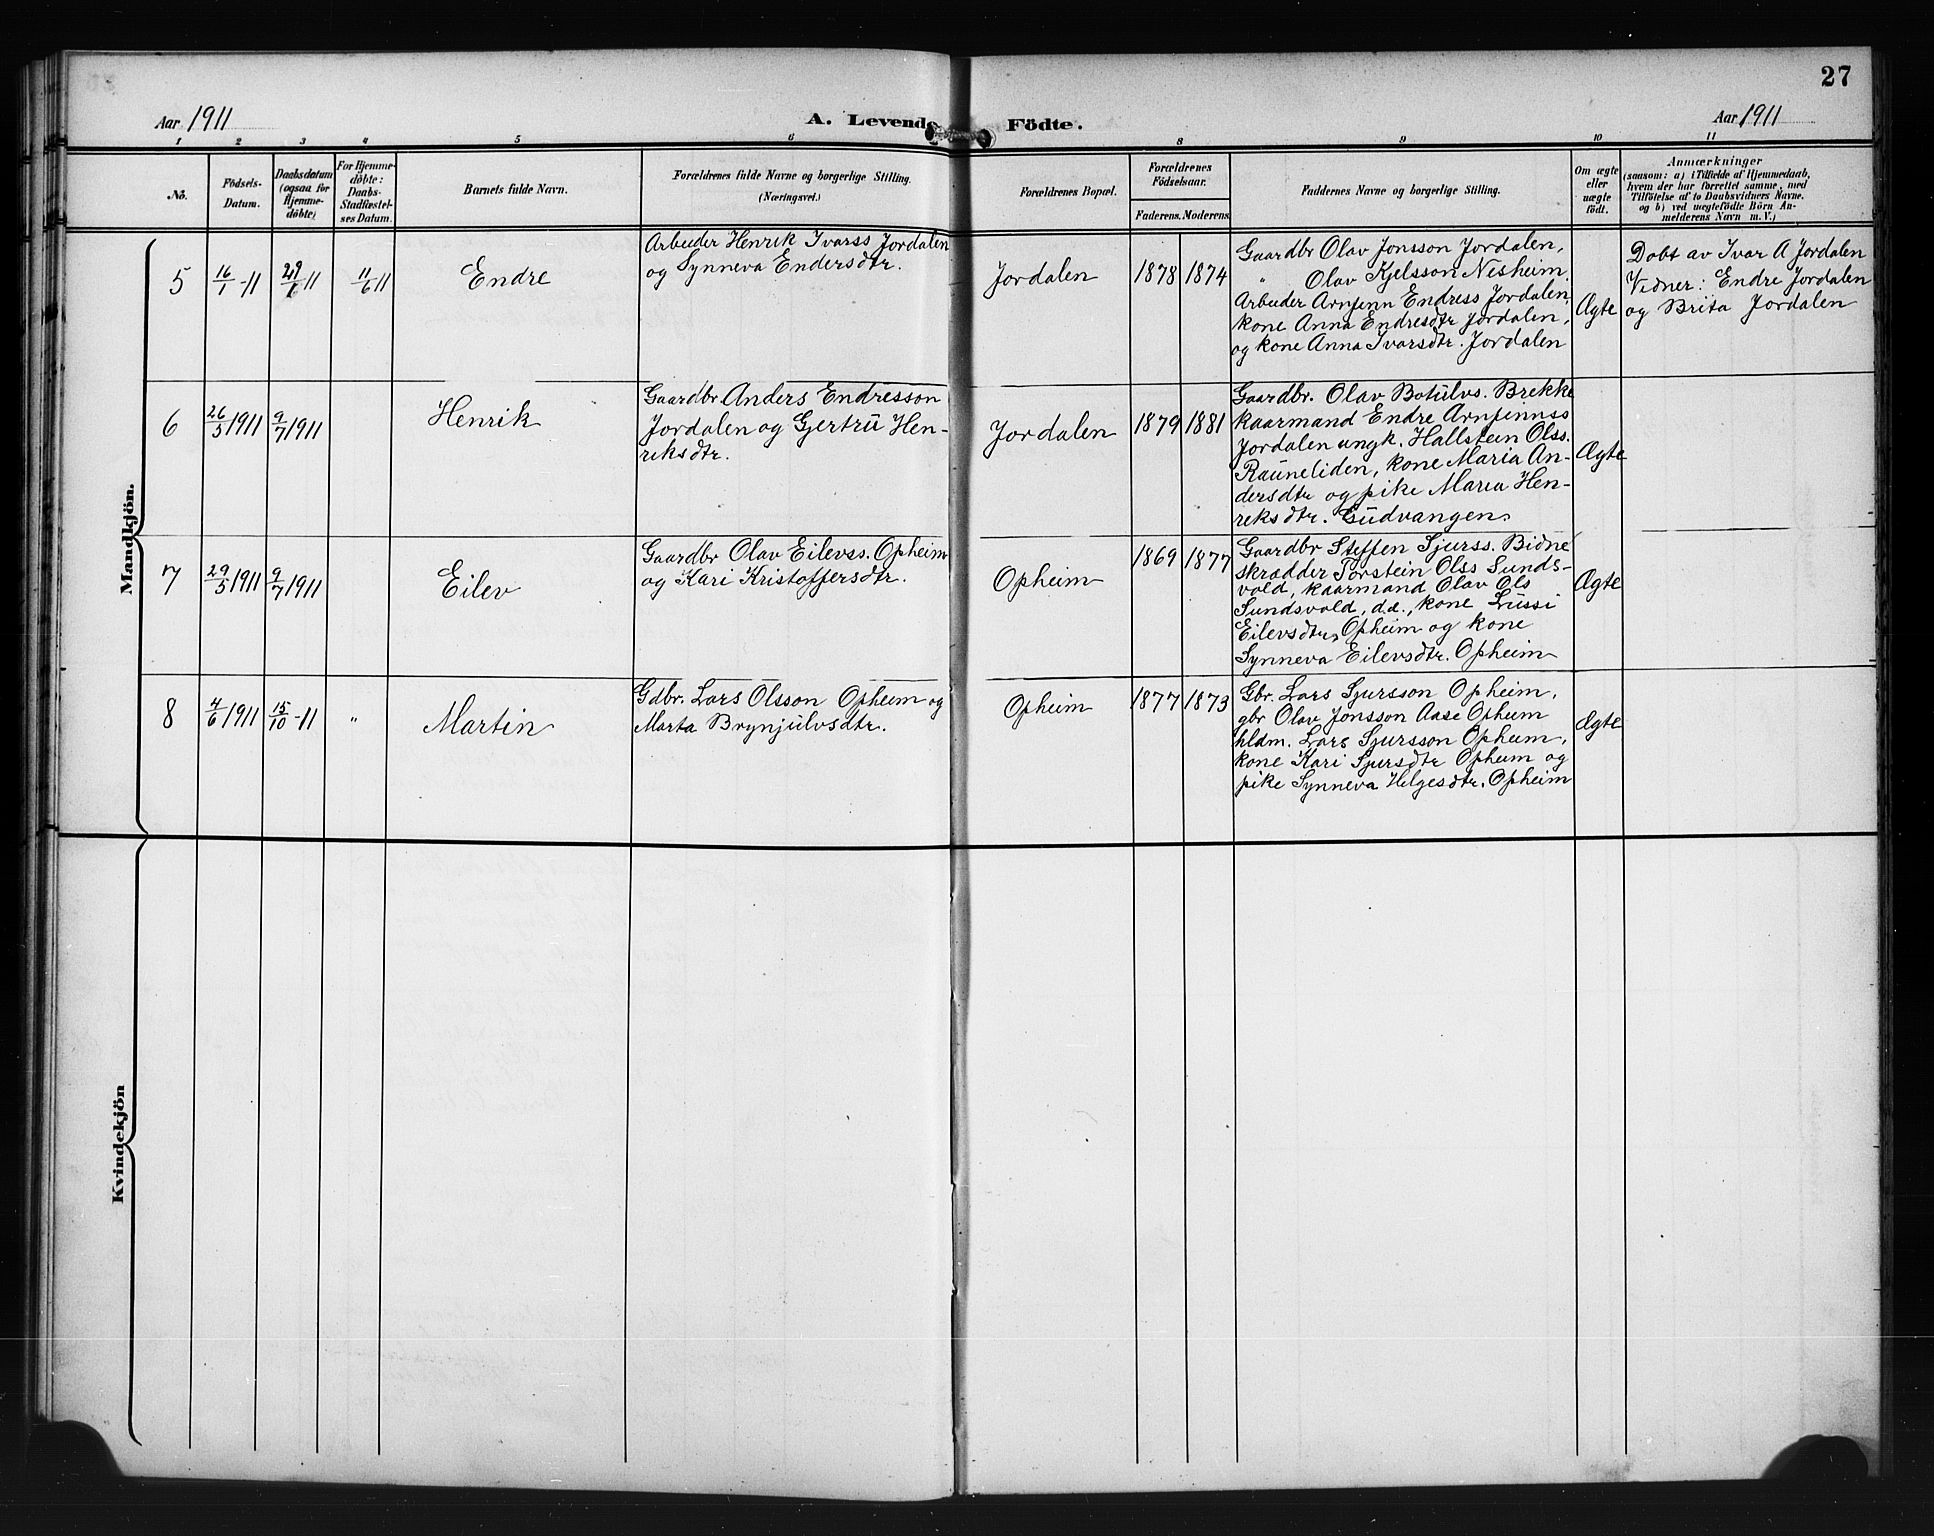 27
Aar 1911
A. Levende Födte.
Aar 1911
1 2 3 4 5 6 8 9 10 11
No.
Födsels-
Datum.
Daabsdatum
(ogsaa for
Hjemme-
döbte)
For Hjemme-
döbte:
Daabs-
Stadfæstel-
ses Datum.
Barnets fulde Navn.
Forældrenes fulde Navne og borgerlige Stilling.
(Næringsvei.)
Forældrenes Bopæl.
Forældrenes
Födselsaar.
Faderens. Moderens.
Faddernes Navne og borgerlige Stilling.
Om ægte
eller
uægte
født.
Anmærkninger
(saasom: a) i Tilfælde af Hjemmedaab,
hvem der har forrettet samme, med
Tilföielse af to Daabsvidners Navne.
og b) ved uægtefödte Börn An-
melderens Navn m. V.)
Mandkjön.
5
16/1-11
29/6 11
11/6 11
Endre
Arbeider Henrik Ivarss Jordalen
og Synneva Endersdtr.
Jordalen
1878
1874
Gaardbr Olav Jonsson Jordalen,
" Olav Kjelsson Nesheim,
Arbeider Arnfinn Endress Jordalen,
kone Anna Endresdtr Jordalen,
og kone Anna Ivarsdtr. Jordalen
Ægte
Döbt av Ivar A Jordalen
Vidner: Endre Jordalen
og Brita Jordalen
6
26/5 1911
9/7 1911
Henrik
Gaardbr Anders Endresson
Jordalen og Gjertru Hen-
riksdtr.
Jordalen
1879
1881
Gaardbr. Olav Botulvs. Brekke
kaarmand Endre Arnfinnss
Jordalen ungk. Hallstein Olss.
Rauneliden, kone Maria An-
dersdtr og pike Maria Hen-
reksdtr. Gudvangen.
Ægte
7
29/5 1911
9/7 1911
Eilev
Gaardbr Olav Eilevss. Opheim
og Kari Kristoffersdtr.
Opheim
1869
1877
Gaardbr Steffen Sjurss. Bidne
skrædder Torstein Olss Sunds-
vold, kaarmand Olav Ols
Sundsvold, d.e., kone Lussi
Eilevsdtr. Opheim og kone
Synneva Eilevsdtr. Opheim
Ægte
8
4/6 1911
15/10-11
"
Martin
Gdbr. Lars Olsson Opheim og
Marta Brynjulvsdtr.
Opheim
1877
1873
Gbr. Lars Sjursson Opheim,
gbr Olav Jonsson Aase Opheim
hldm. Lars Sjursson Opheim,
kone Kari Sjursdtr Opheim og
pike Synneva Helgesdtr. Opheim
Ægte
Kvindekjön